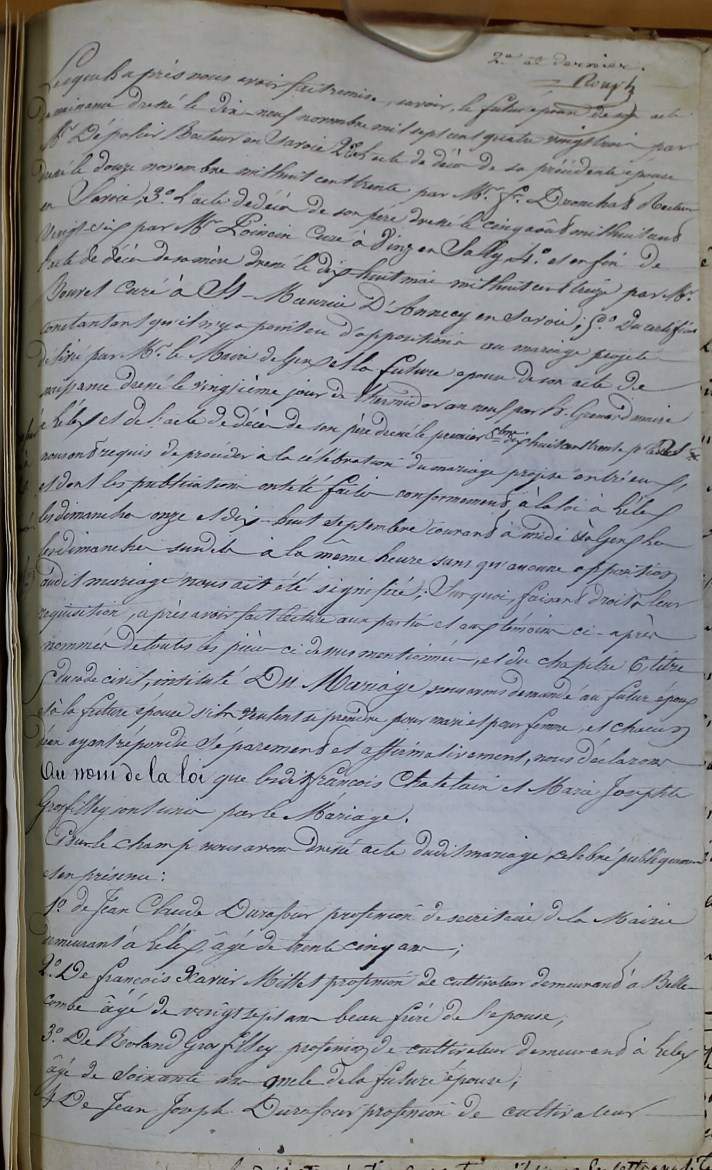 2e et dernier.
Rouph
Lesquels après nous avoir fait remise, savoir, le futur époux de son acte
de naissance dressé le dix-neuf novembre mil sept cent quatre vingt trois par
Mr Dépolier Recteur en Savoie 2o l'acte de décès de sa précédente épouse
dressé le douze novembre mil huit cent trente par Mr. Recteur
en Savoie, 3o. l'acte de décès de son père dressé le cinq août mil huit cent
vingt six par Mr Poincin Curé à Dingy en Sally 4o. et enfin de
l'acte de décès de sa mère dressé le dix huit mai mil huit cent treize par Mr.
Bouvet Curé à St-Maurice D'Annecy en Savoie; 5o. Du certificat
constatant qu'il n'y a point eu d'opposition au mariage projeté
délivré par Mr. le Maire de Gex et la future epouse de son acte de
naissance dressé le vingtième jour de thermidor an neuf par h. Grenard maire
à Lélex et de l'acte de décès de son père dressé le premier 8bre dix huit cent trente par
nous ont requis de procéder à la célébration du mariage projeté entr'eux,
et dont les publications ont été faites conformément à la loi à Lélex
les dimanches onze et dix-huit septembre courant à midi à Gex les
les dimanches susdits à la même heure sans qu'aucune opposition
audit mariage nous ait été signifiée. Sur quoi, faisant droit à leur
réquisition, après avoir fait lecture aux parties et aux témoins ci-après
nommés de toutes les pièces ci dessus mentionnées, et du chapitre 6 titre
5 du code civil, intitulé Du Mariage, nous avons demandé au futur époux
et à la future épouse s'ils veulent se prendre pour mari et pour femme, et chacun
d'eux ayant répondu séparement et affirmativement, nous déclarons
Au nom de la loi que lesdits françois Chatelain et Marie Josephte
Grosfilley sont unis par le Mariage.
Sur le champ nous avons dressé acte dudit mariage célébré publiquement
et en présence:
1o. de Jean Claude Duraffour profession de secrétaire de la Mairie
demeurant à Lélex âgé de trente cinq ans;
2o. De françois Xavier Millet profession de cultivateur demeurant à Belle-
combe âgé de vingt sept ans beau frère de l'épouse;
3o. De Roland Grosfilley profession de cultivateur demeurant à Lélex
âgé de soixante ans oncle de la future épouse;
4 De Jean Joseph Duraffour profession de cultivateur